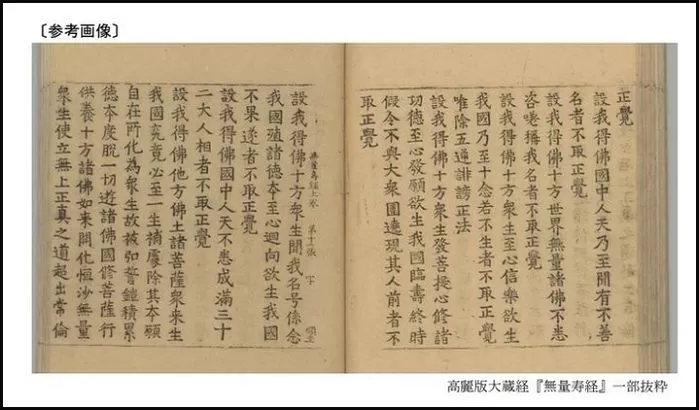 〔参考画像〕
正覺
設我得佛國中人天乃至聞有不善
名者不取正覺
設我得佛十方世界無量諸佛不悉
咨嗟稱我名者不取正覺
設我得佛十方衆生至心信樂欲生
我國乃至十念若不生者不取正覺
唯除五逆誹謗正法
設我得佛十方衆生發菩提心修諸
功德至心發願欲生我國臨壽終時
假令不與大衆圍遶現其人前者不
取正覺
無量壽經上卷 第十張 字
設我得佛十方衆生聞我名号係念
我國殖諸德本至心迴向欲生我國
不果遂者不取正覺
設我得佛國中人天不悉成滿三十
二大人相者不取正覺
設我得佛他方佛土諸菩薩衆來生
我國究竟必至一生補處除其本願
自在所化為衆生故被弘誓鎧積累
德本度脫一切遊諸佛國修菩薩行
供養十方諸佛如來開化恒沙無量
衆生使立無上正真之道超出常倫
高麗版大蔵経『無量寿経』一部抜粋